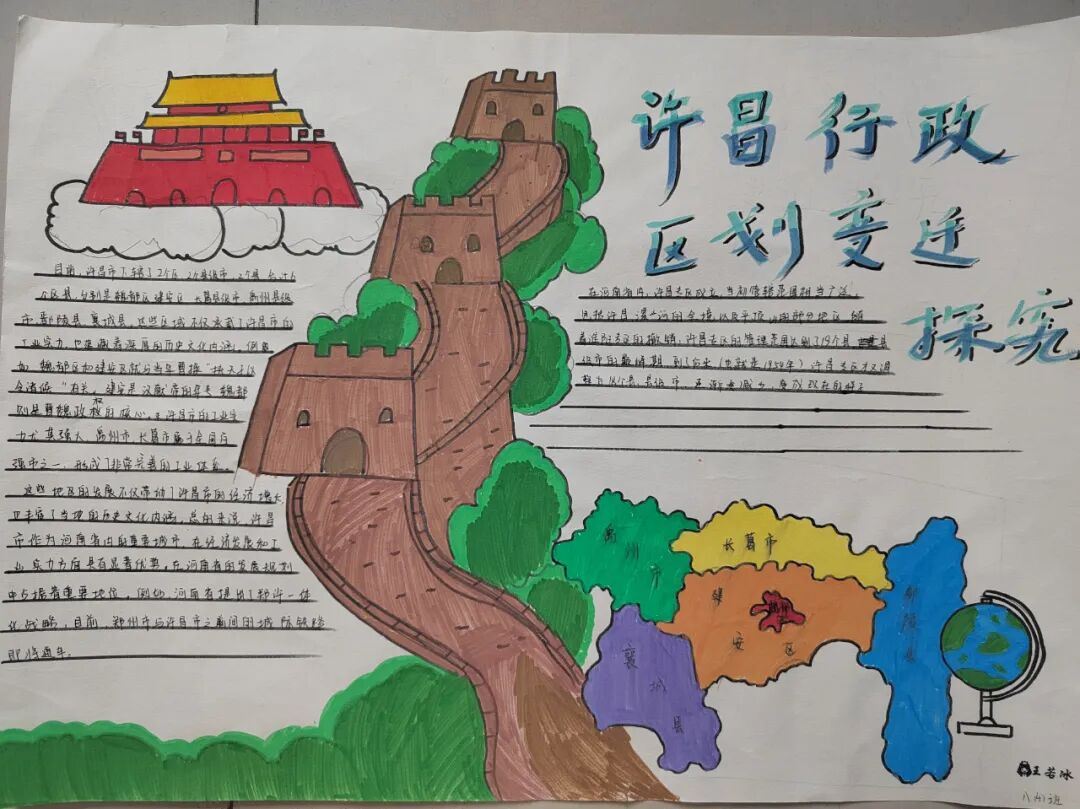 许昌行政
区划变迁
探究
目前,许昌市下辖了2个区,2个县级市,2个县,合计6
个区县,分别是魏都区建安区、长葛县级市、禹州县级
市、鄢陵县、襄城县,这些区域不仅承载了许昌市的
工业实力,也蕴藏着深厚的历史文化内涵,例
如,魏都区和建安区就与当年曹操"挟天子以
令诸侯"有关,建安是汉献帝的年号,魏都
则是曹魏政权的核心,而许昌市的工业实
力尤其强大,禹州市、长葛市属于全国百
强市之一,形成了非常完善的工业体系。
这些地区的发展不仅带动了许昌市的经济增长
丰富了当地的历史文化内涵,总的来说,许昌
市作为河南省内的重要城市,在经济发展和工
业实力方面具有显著优势,在河南省的发展规划
中占据着重要地位,例如,河南省提出了郑许一体
化战略,目前,郑州市与许昌市之间的城际铁路
即将通车。
在河南省内,许昌专区成立,当初管辖范围相当广泛
包括许昌、漯河的全境,以及平顶山的部分地区,随
着淮阳专区的撤销,许昌专区的管理范围达到了19个县
级市的巅峰期,到后来
禹州市
长葛市
建安区
襄城县
鄢陵县
王若冰
八(4)班